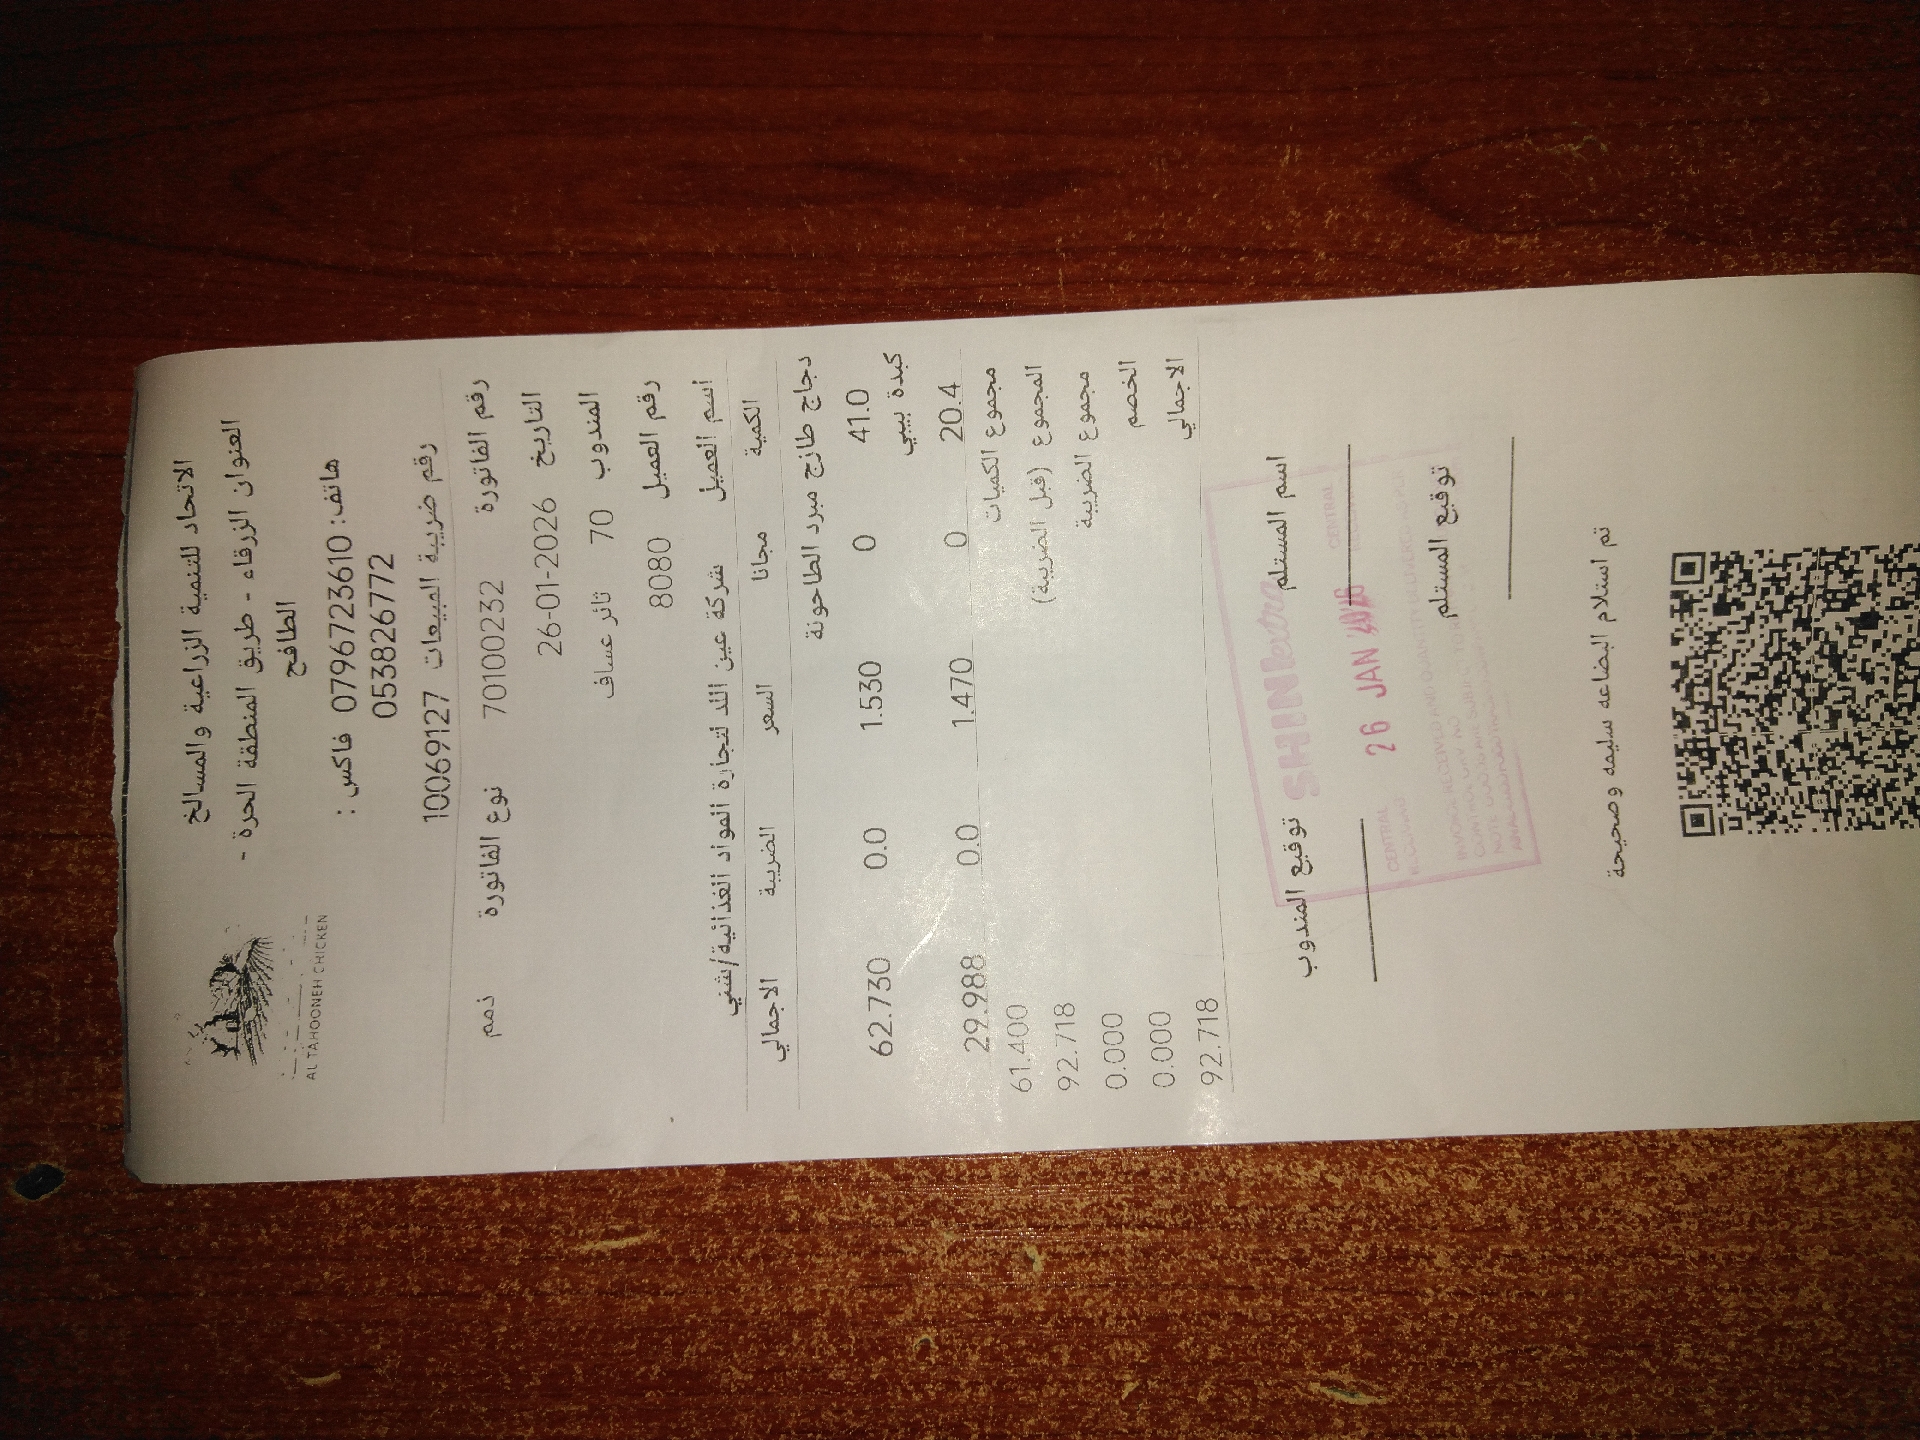 الاتحاد للتنمية الزراعية والمسالخ
العنوان الزرقاء - طريق المنطقة الحرة -
الطافح
هاتف: 0796723610 فاكس :
053826772
رقم ضريبة المبيعات 10069127
AL TAHOONEH CHICKEN
رقم الفاتورة 70100232 نوع الفاتورة ذمم
التاريخ 26-01-2026
المندوب 70 ثائر عساف
رقم العميل 8080
اسم العميل شركة عين اللد لتجارة المواد الغذائية/شني
الكمية مجانا السعر الضريبة الاجمالي
دجاج طازج مبرد الطاحونة
41.0 0 1.530 0.0 62.730
كبدة بيبي
20.4 0 1.470 0.0 29.988
مجموع الكميات 61.400
المجموع (قبل الضريبة) 92.718
مجموع الضريبة 0.000
الخصم 0.000
الاجمالي 92.718
اسم المستلم توقيع المندوب
26 JAN
CENTRAL
CENTRAL
توقيع المستلم
تم استلام البضاعه سليمه وصحيحة